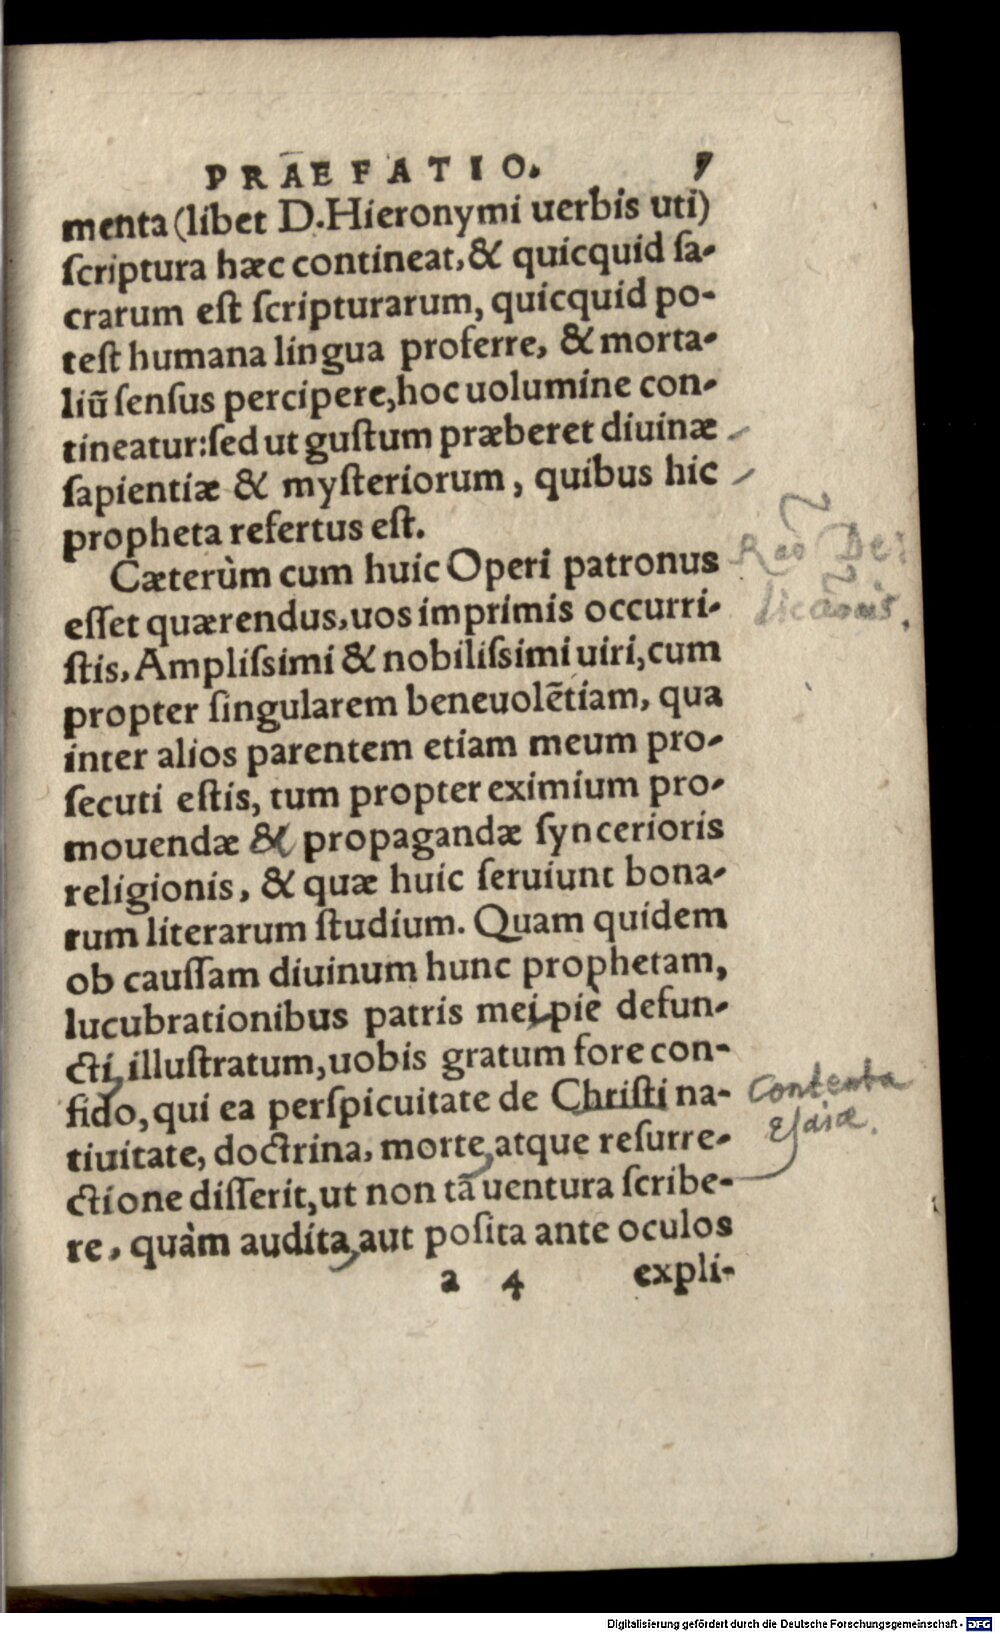 PRAEFATIO. 7
menta (libet D. Hieronymi uerbis uti)
ſcriptura hæc contineat, & quicquid ſa-
crarum eſt ſcripturarum, quicquid po-
teſt humana lingua proferre, & morta-
liũ ſenſus percipere, hoc uolumine con-
tineatur: ſed ut guſtum præberet diuinæ
ſapientiæ & myſteriorum, quibus hic
propheta refertus eſt.
Cæterùm cum huic Operi patronus
eſſet quærendus, uos imprimis occurri-
ſtis, Ampliſsimi & nobiliſsimi uiri, cum
propter ſingularem beneuolẽtiam, qua
inter alios parentem etiam meum pro-
ſecuti eſtis, tum propter eximium pro-
mouendæ & propagandæ ſyncerioris
religionis, & quæ huic ſeruiunt bona-
rum literarum ſtudium. Quam quidem
ob cauſſam diuinum hunc prophetam,
lucubrationibus patris mei piè defun-
cti, illuſtratum, uobis gratum fore con-
fido, qui ea perſpicuitate de Chriſti na-
tiuitate, doctrina, morte, atque reſurre-
ctione diſſerit, ut non tã uentura ſcribe-
re, quàm audita, aut poſita ante oculos
a 4 expli-
Rao De:
dicãonis.
Contenta
Eſaiæ.
Digitalisierung gefördert durch die Deutsche Forschungsgemeinschaft - DFG